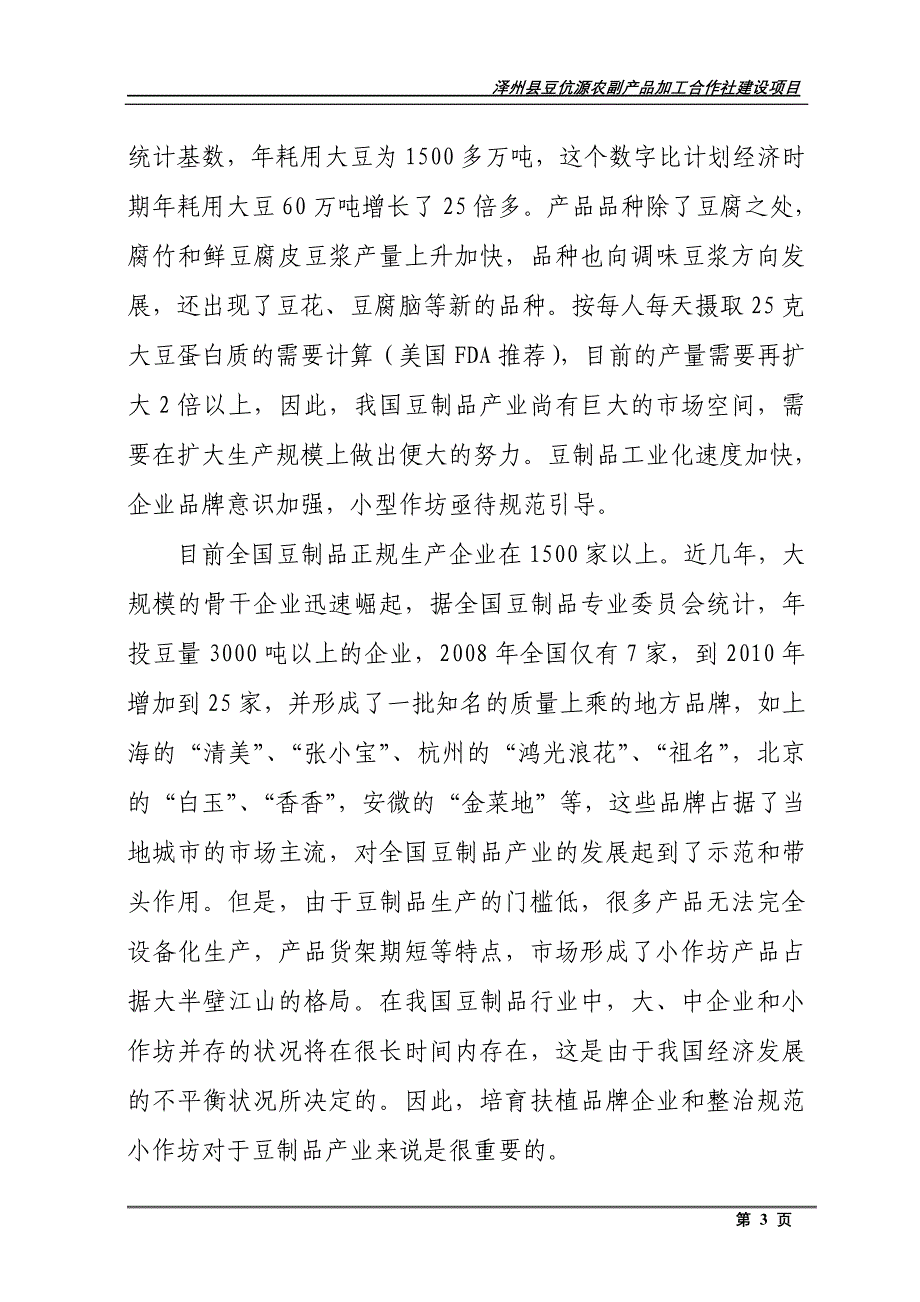 泽州县豆优源农副产品加工合作社建设项目
统计基数，年耗用大豆为 1500 多万吨，这个数字比计划经济时
期年耗用大豆 60 万吨增长了 25 倍多。产品品种除了豆腐之处，
腐竹和鲜豆腐皮豆浆产量上升加快，品种也向调味豆浆方向发
展，还出现了豆花、豆腐脑等新的品种。按每人每天摄取 25 克
大豆蛋白质的需要计算（美国 FDA 推荐），目前的产量需要再扩
大 2 倍以上，因此，我国豆制品产业尚有巨大的市场空间，需
要在扩大生产规模上做出便大的努力。豆制品工业化速度加快，
企业品牌意识加强，小型作坊亟待规范引导。
目前全国豆制品正规生产企业在 1500 家以上。近几年，大
规模的骨干企业迅速崛起，据全国豆制品专业委员会统计，年
投豆量 3000 吨以上的企业，2008 年全国仅有 7 家，到 2010 年
增加到 25 家，并形成了一批知名的质量上乘的地方品牌，如上
海的“清美”、“张小宝”、杭州的“鸿光浪花”、“祖名”，北京
的“白玉”、“香香”，安微的“金菜地”等，这些品牌占据了当
地城市的市场主流，对全国豆制品产业的发展起到了示范和带
头作用。但是，由于豆制品生产的门槛低，很多产品无法完全
设备化生产，产品货架期短等特点，市场形成了小作坊产品占
据大半壁江山的格局。在我国豆制品行业中，大、中企业和小
作坊并存的状况将在很长时间内存在，这是由于我国经济发展
的不平衡状况所决定的。因此，培育扶植品牌企业和整治规范
小作坊对于豆制品产业来说是很重要的。
第 3 页